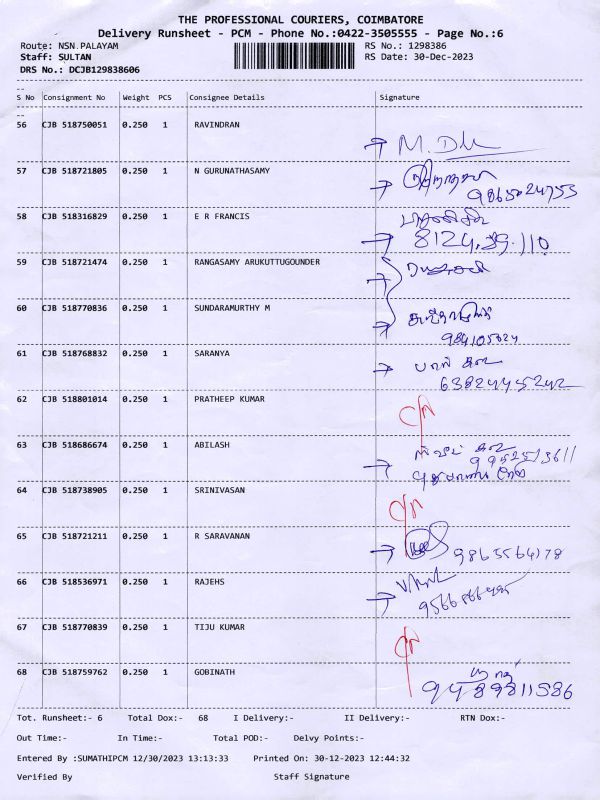 THE PROFESSIONAL COURIERS, COIMBATORE
Delivery Runsheet - PCM - Phone No.:0422-3505555 - Page No.:6
Route: NSN.PALAYAM RS No.: 1298386
Staff: SULTAN RS Date: 30-Dec-2023
DRS No.: DCJB129838606
S No Consignment No Weight PCS Consignee Details Signature
56 CJB 518750051 0.250 1 RAVINDRAN
57 CJB 518721805 0.250 1 N GURUNATHASAMY
58 CJB 518316829 0.250 1 E R FRANCIS
59 CJB 518721474 0.250 1 RANGASAMY ARUKUTTUGOUNDER
60 CJB 518770836 0.250 1 SUNDARAMURTHY M
61 CJB 518768832 0.250 1 SARANYA
6382445242
62 CJB 518801014 0.250 1 PRATHEEP KUMAR
63 CJB 518686674 0.250 1 ABILASH
64 CJB 518738905 0.250 1 SRINIVASAN
65 CJB 518721211 0.250 1 R SARAVANAN
9863564178
66 CJB 518536971 0.250 1 RAJEHS
67 CJB 518770839 0.250 1 TIJU KUMAR
68 CJB 518759762 0.250 1 GOBINATH
9489811586
Tot. Runsheet:- 6 Total Dox:- 68 I Delivery:- II Delivery:- RTN Dox:-
Out Time:- In Time:- Total POD:- Delvy Points:-
Entered By :SUMATHIPCM 12/30/2023 13:13:33 Printed On: 30-12-2023 12:44:32
Verified By Staff Signature